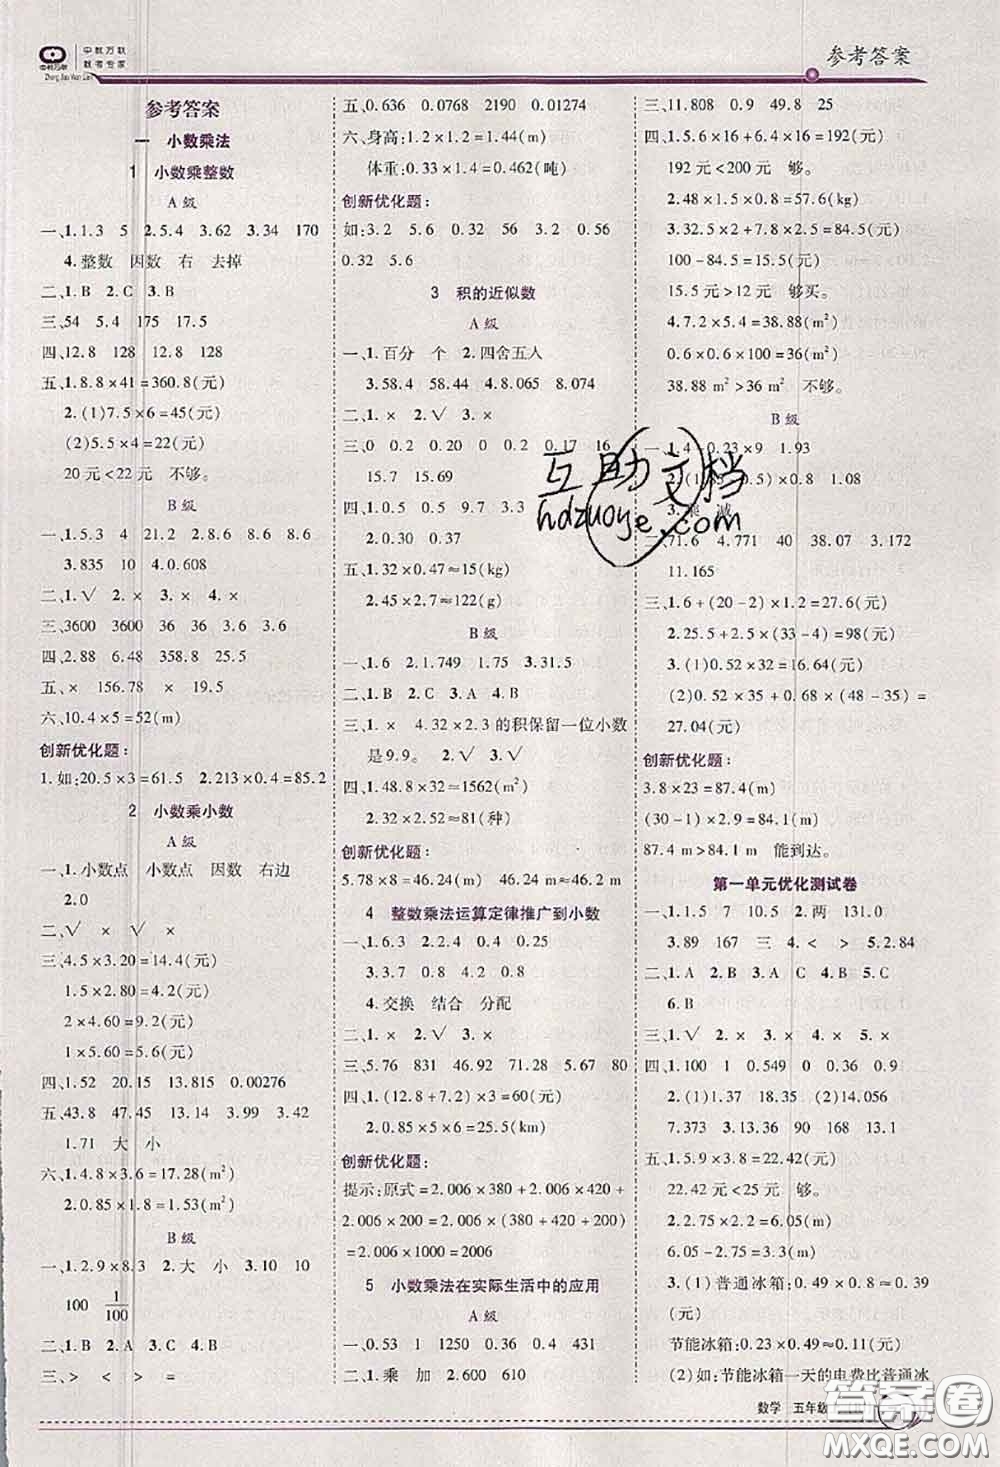 中教万联
中教万联
教考专家
Zhong Jiao Wan Lian
参考答案
参考答案
一 小数乘法
1 小数乘整数
A 级
一、1.1.3 5 2.5.4 3.62 3.34 170
4.整数 因数 右 去掉
二、1.B 2.C 3.B
三、54 5.4 175 17.5
四、12.8 128 12.8 128
五、1.8.8×41=360.8(元)
2.(1)7.5×6=45(元)
(2)5.5×4=22(元)
20 元<22 元 不够。
B 级
一、1.5.3 4 21.2 2.8.6 8.6 8.6
3.835 10 4.0.608
二、1.√ 2.× 3.× 4.×
三、3600 3600 36 36 3.6 3.6
四、2.88 6.48 358.8 25.5
五、× 156.78 × 19.5
六、10.4×5=52(m)
创新优化题：
1.如:20.5×3=61.5 2.213×0.4=85.2
2 小数乘小数
A 级
一、1.小数点 小数点 因数 右边
2.0
二、√ × √ ×
三、4.5×3.20=14.4(元)
1.5×2.80=4.2(元)
2×4.60=9.2(元)
1×5.60=5.6(元)
四、1.52 20.15 13.524 0.00276
五、43.8 47.45 13.3 3.99 3.42
1.71 大 小
六、1.4.8×3.6=17.28(m²)
2.0.85×1.8=1.53(m²)
B 级
一、1.2.9×8.3 2.大 小 3.10 10
100 1/100
二、1.B 2.A 3.C 4.B
三、> < > =
五、0.636 0.0768 2190 0.01274
六、身高:1.2×1.2=1.44(m)
体重:0.33×1.4=0.462(吨)
创新优化题：
如:3.2 5.6 0.56 3.2 0.56
0.32 5.6
3 积的近似数
A 级
一、1.百分 个 2.四舍五入
3.58.4 58.44 4.8.065 8.074
二、1.× 2.√ 3.×
三、0 0.2 0.20 0 0.2 0.17 16
15.7 15.69
四、1.0.5 0.5 9.7 9.7
2.0.30 0.37
五、1.32×0.47≈15(kg)
2.45×2.7≈122(g)
B 级
一、1.6 2.1.749 1.75 3.31.5
二、1.B 2.C 3.A 4.B
三、1.× 4.32×2.3 的积保留一位小数
是 9.9。 2.√ 3.√
四、1.48.8×32≈1562(m²)
2.32×2.52≈81(种)
创新优化题：
5.78×8=46.24(m) 46.24 m≈46.2 m
4 整数乘法运算定律推广到小数
一、1.6.3 2.2.4 0.4 0.25
3.3.7 0.8 4.8
4.交换 结合 分配
二、1.× 2.√ 3.×
三、5.76 831 46.92 71.28 5.67 80
四、1.(12.8+7.2)×3=60(元)
2.0.85×5×6=25.5(km)
创新优化题：
提示:原式=2.006×380+2.006×420+
2.006×200=2.006×(380+420+200)
=2.006×1000=2006
5 小数乘法在实际生活中的应用
A 级
一、0.53 1 1250 0.36 0.4 431
二、1.乘 加 2.600 610
三、11.808 0.9 49.8 25
四、1.5.6×16+6.4×16=192(元)
192 元<200 元 够。
2.48×1.5×0.8=57.6(kg)
3.32.5×2+7.8×2.5=84.5(元)
100-84.5=15.5(元)
15.5 元>12 元 够买。
4.7.2×5.4=38.88(m²)
0.6×0.6×100=36(m²)
38.88 m²>36 m² 不够。
B 级
0.23×9 1.93
0.8 1.08
减
71.6 4.771 40 38.07 3.172
11.165
三、1.6+(20-2)×1.2=27.6(元)
2.25.5+2.5×(33-4)=98(元)
3.(1)0.52×32=16.64(元)
(2)0.52×35+0.68×(48-35)=
27.04(元)
创新优化题：
3.8×23=87.4(m)
(30-1)×2.9=84.1(m)
87.4 m>84.1 m 能到达。
第一单元优化测试卷
一、1.1.5 7 10.5 2.两 131.0
3.89 167 三 4.< > 5.2.84
二、1.A 2.B 3.A C 4.B 5.A
6.B
三、1.√ 2.× 3.× 4.× 5.×
四、1.100 1 0.549 0 0.36 0.9
2.(1)1.37 18.35 (2)14.056
7.373 3.13.16 90 168 13.1
五、1.5.9×3.8=22.42(元)
22.42 元<25 元 够。
2.2.2×2.75=6.05(m)
6.05-2.2=3.85(m)
3.(1)普通冰箱:0.49×0.8≈0.39
(元)
节能冰箱:0.23×0.49≈0.11(元)
(2)如:节能冰箱一天的电费比普通冰
互助文档
hdzuoye.com
数学 五年级
答案圈
MXQE.COM